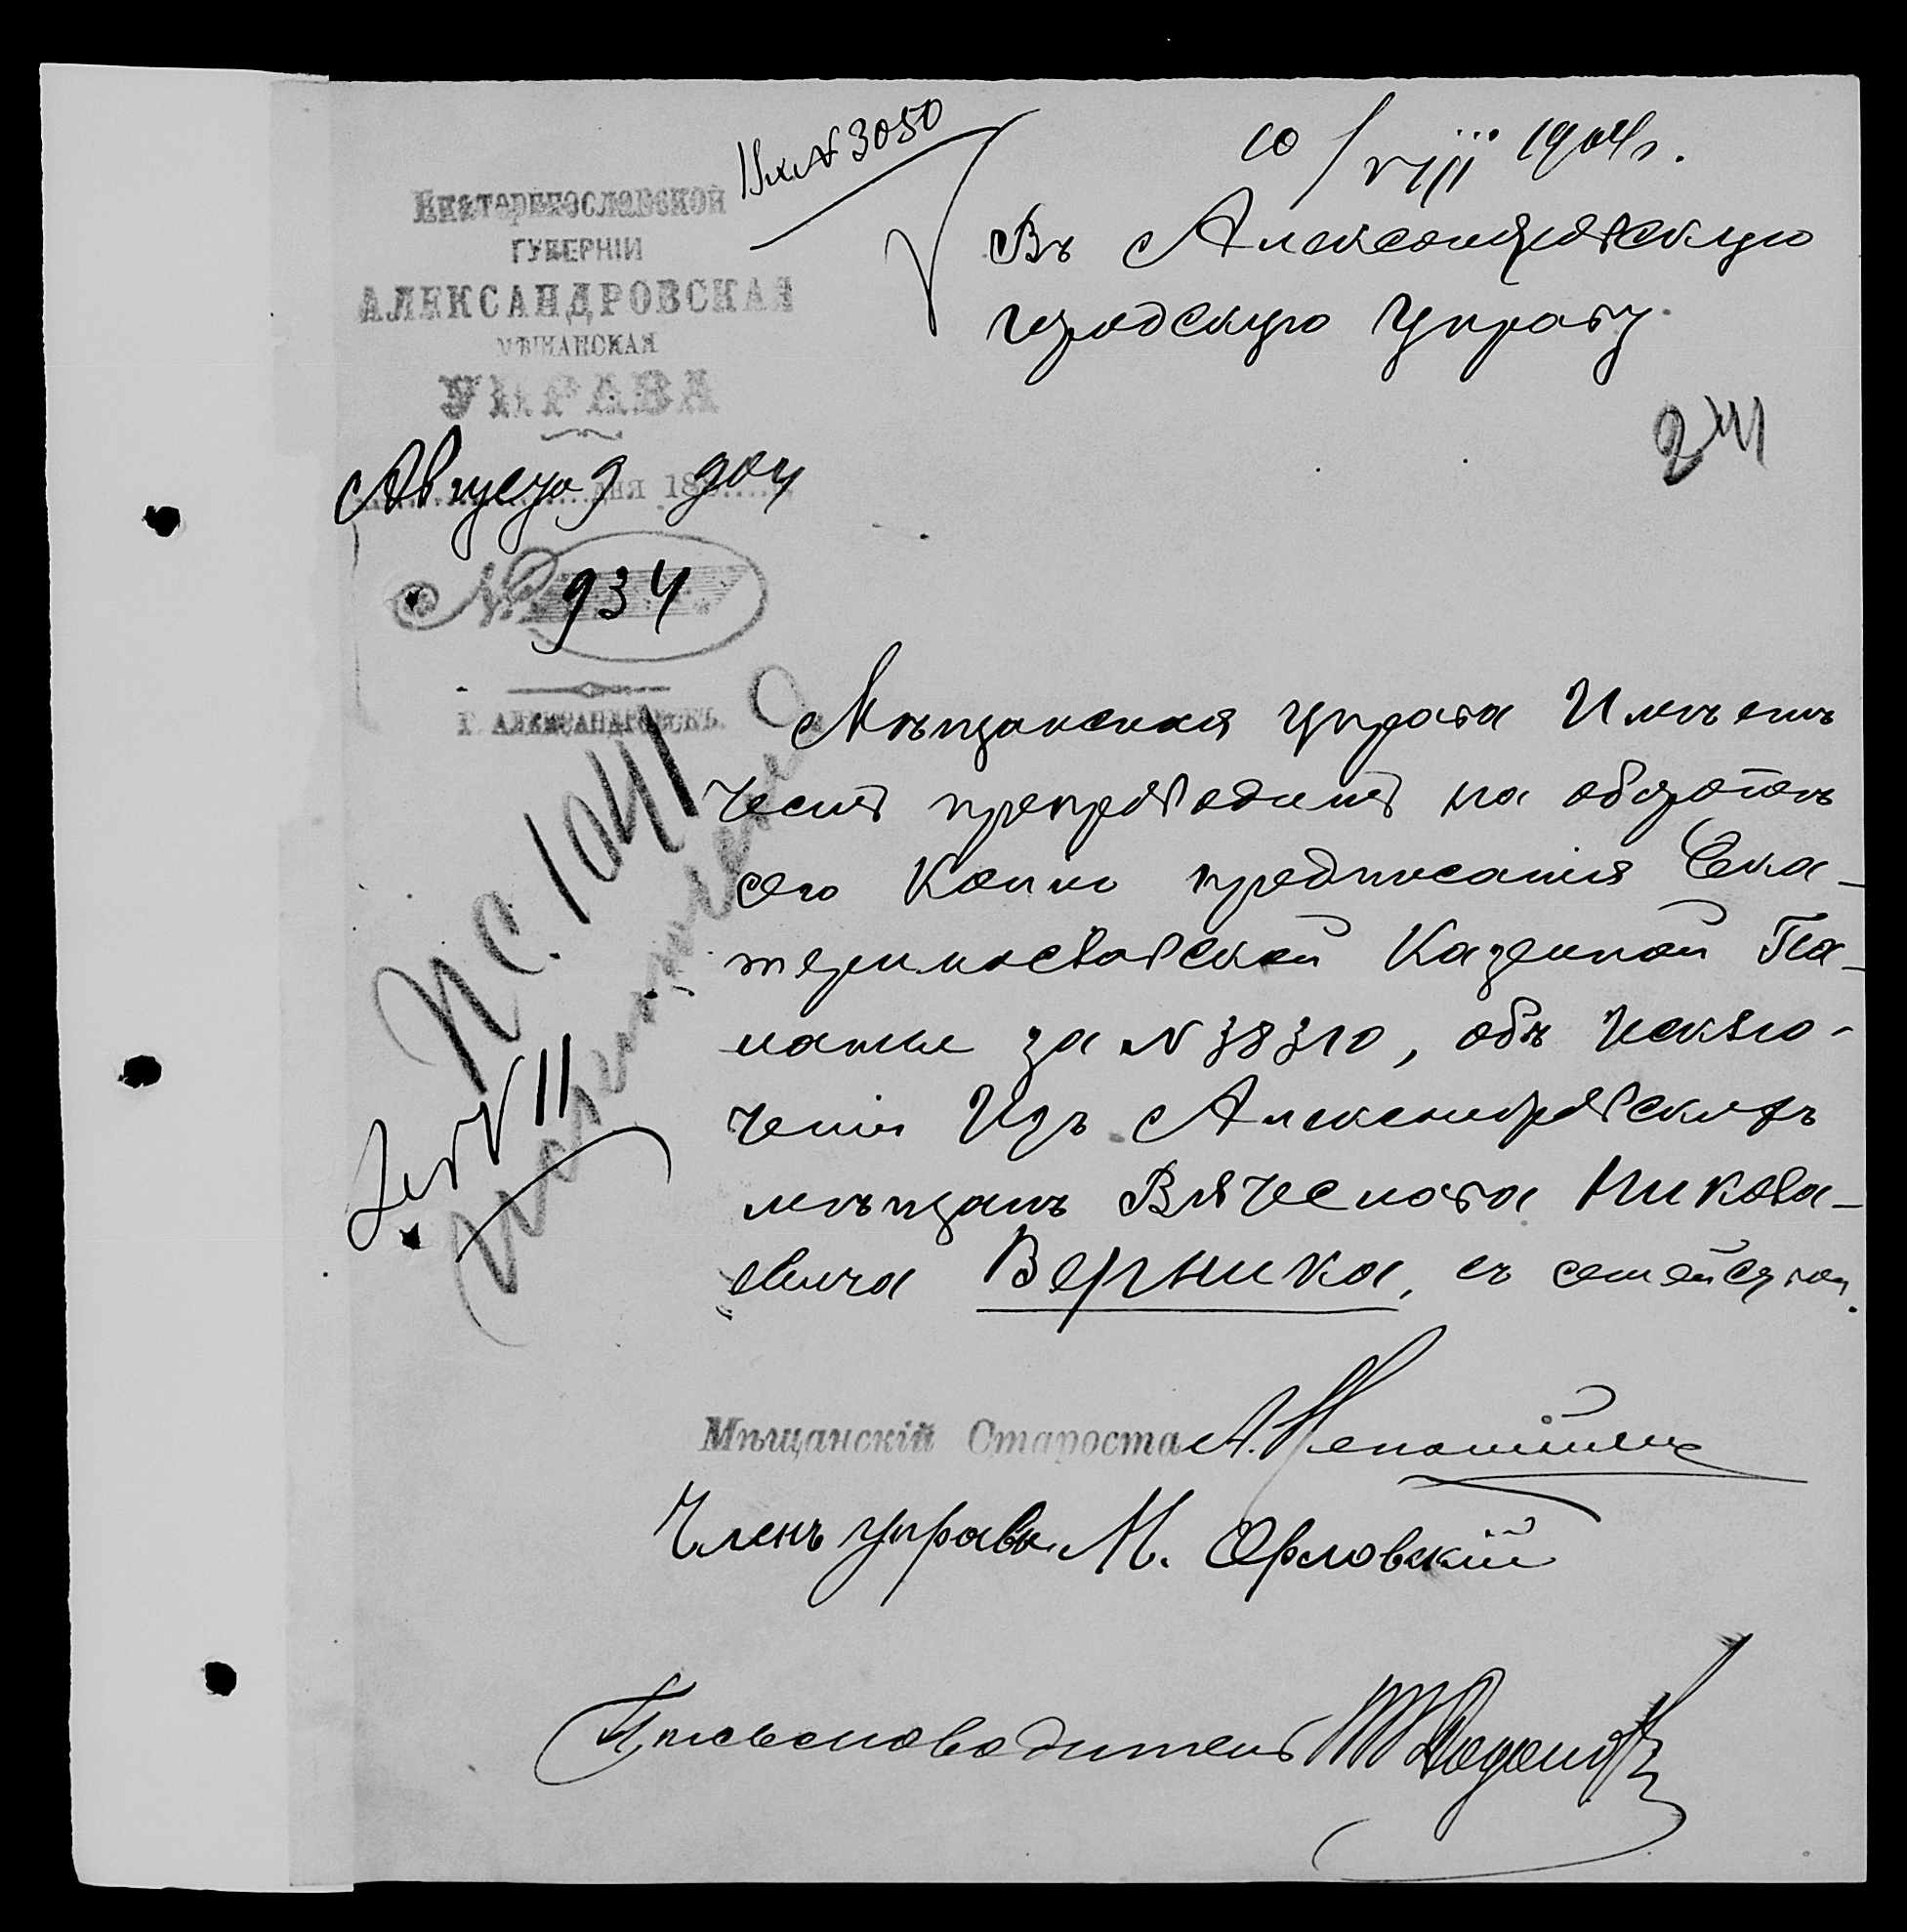 Вх. № 3050
10/VIII 1904 г.
Екатеринославской
ГУБЕРНІИ
АЛЕКСАНДРОВСКАЯ
МѢЩАНСКАЯ
УПРАВА
Августа 9 дня 1904
№ 934
Г. АЛЕКСАНДРОВСКЪ.
Въ Александровскую
городскую Управу
241
Мѣщанская управа Имѣетъ
честь препроводить на оборотѣ
сего Копію предписанія Ека-
теринославской Казенной Па-
латы за № 38310, объ исклю-
ченіи Изъ Александровскихъ
мѣщанъ Вячеслава Никола-
евича Верника, съ семействомъ.
п с. 1041
Исключено
Мѣщанскій Староста А.
Членъ управы М. Орловскій
Письмоводитель